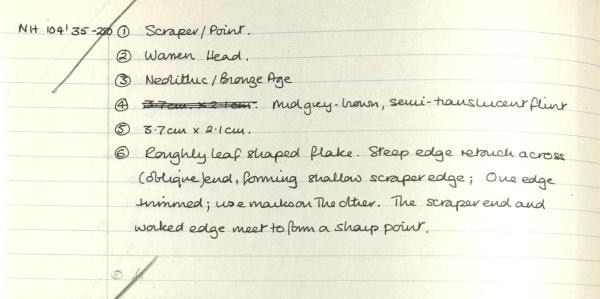 NH 104'35-280 ① Scraper/Point.
② Warren Head.
③ Neolithic/Bronze Age
④ 3.7cm. x 2.1cm. Mid grey-brown, semi-translucent flint
⑤ 3.7cm x 2.1cm.
⑥ Roughly leaf shaped flake. Steep edge retouch across
(oblique) end, forming shallow scraper edge; One edge
trimmed; use marks on the other. The scraper end and
worked edge meet to form a sharp point.